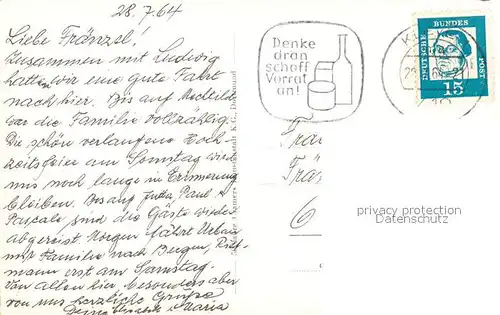 28.7.64
Liebe Fränzel!
Zusammen mit Ludwig
hatten wir eine gute Fahrt
nach hier. Bis auf
war die Familie vollzählig.
Die schön verlaufene Hoch-
zeitsfeier am Samstag wird
uns noch lange in Erinnerung
bleiben. Bis auf Jutta, Paul &
Pascale, sind die Gäste wieder
abgereist. Morgen fährt Urban
mit Familie nach Bergen,
mann erst am Samstag.
Von allen hier besonders aber
von uns herzliche Grüße
Deine Maria
Denke
dran
schaff
Vorrat
an!
DEUTSCHE BUNDES POST
15
Frä
Frä
6
privacy protection
Datenschutz